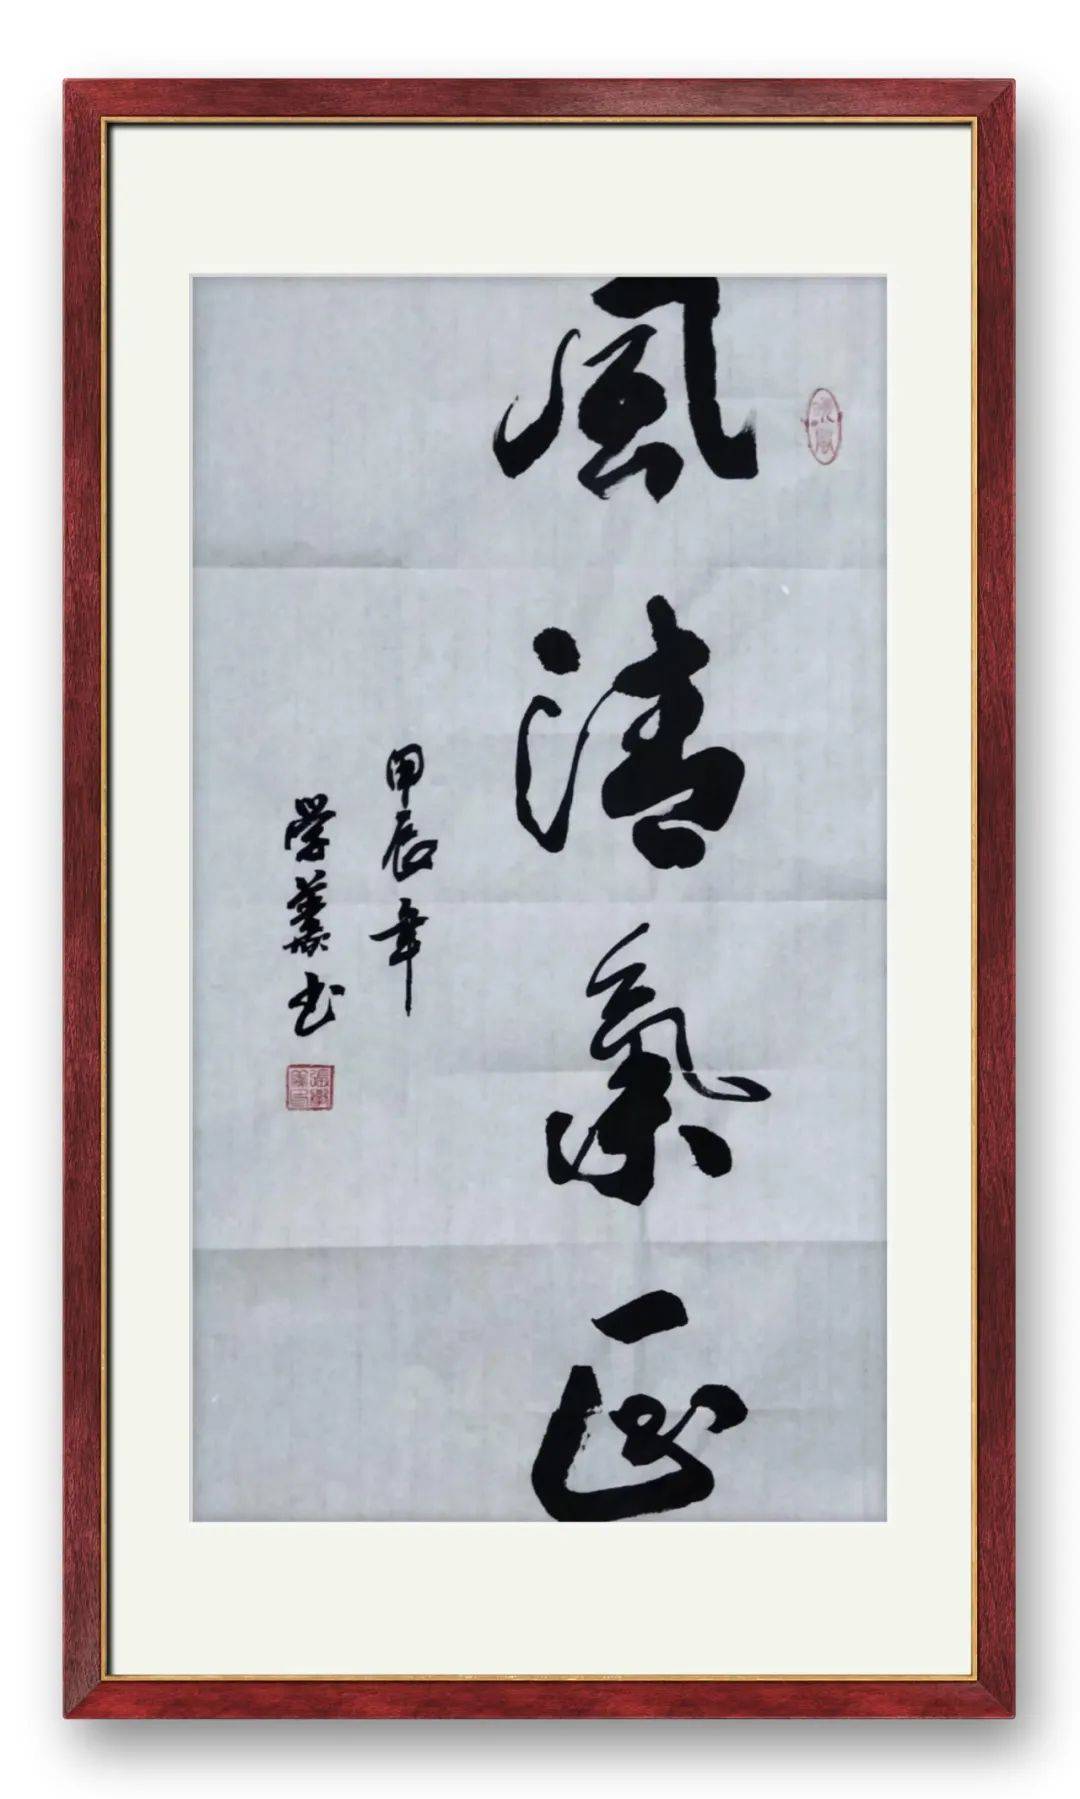 風清氣正
甲辰年
学義书